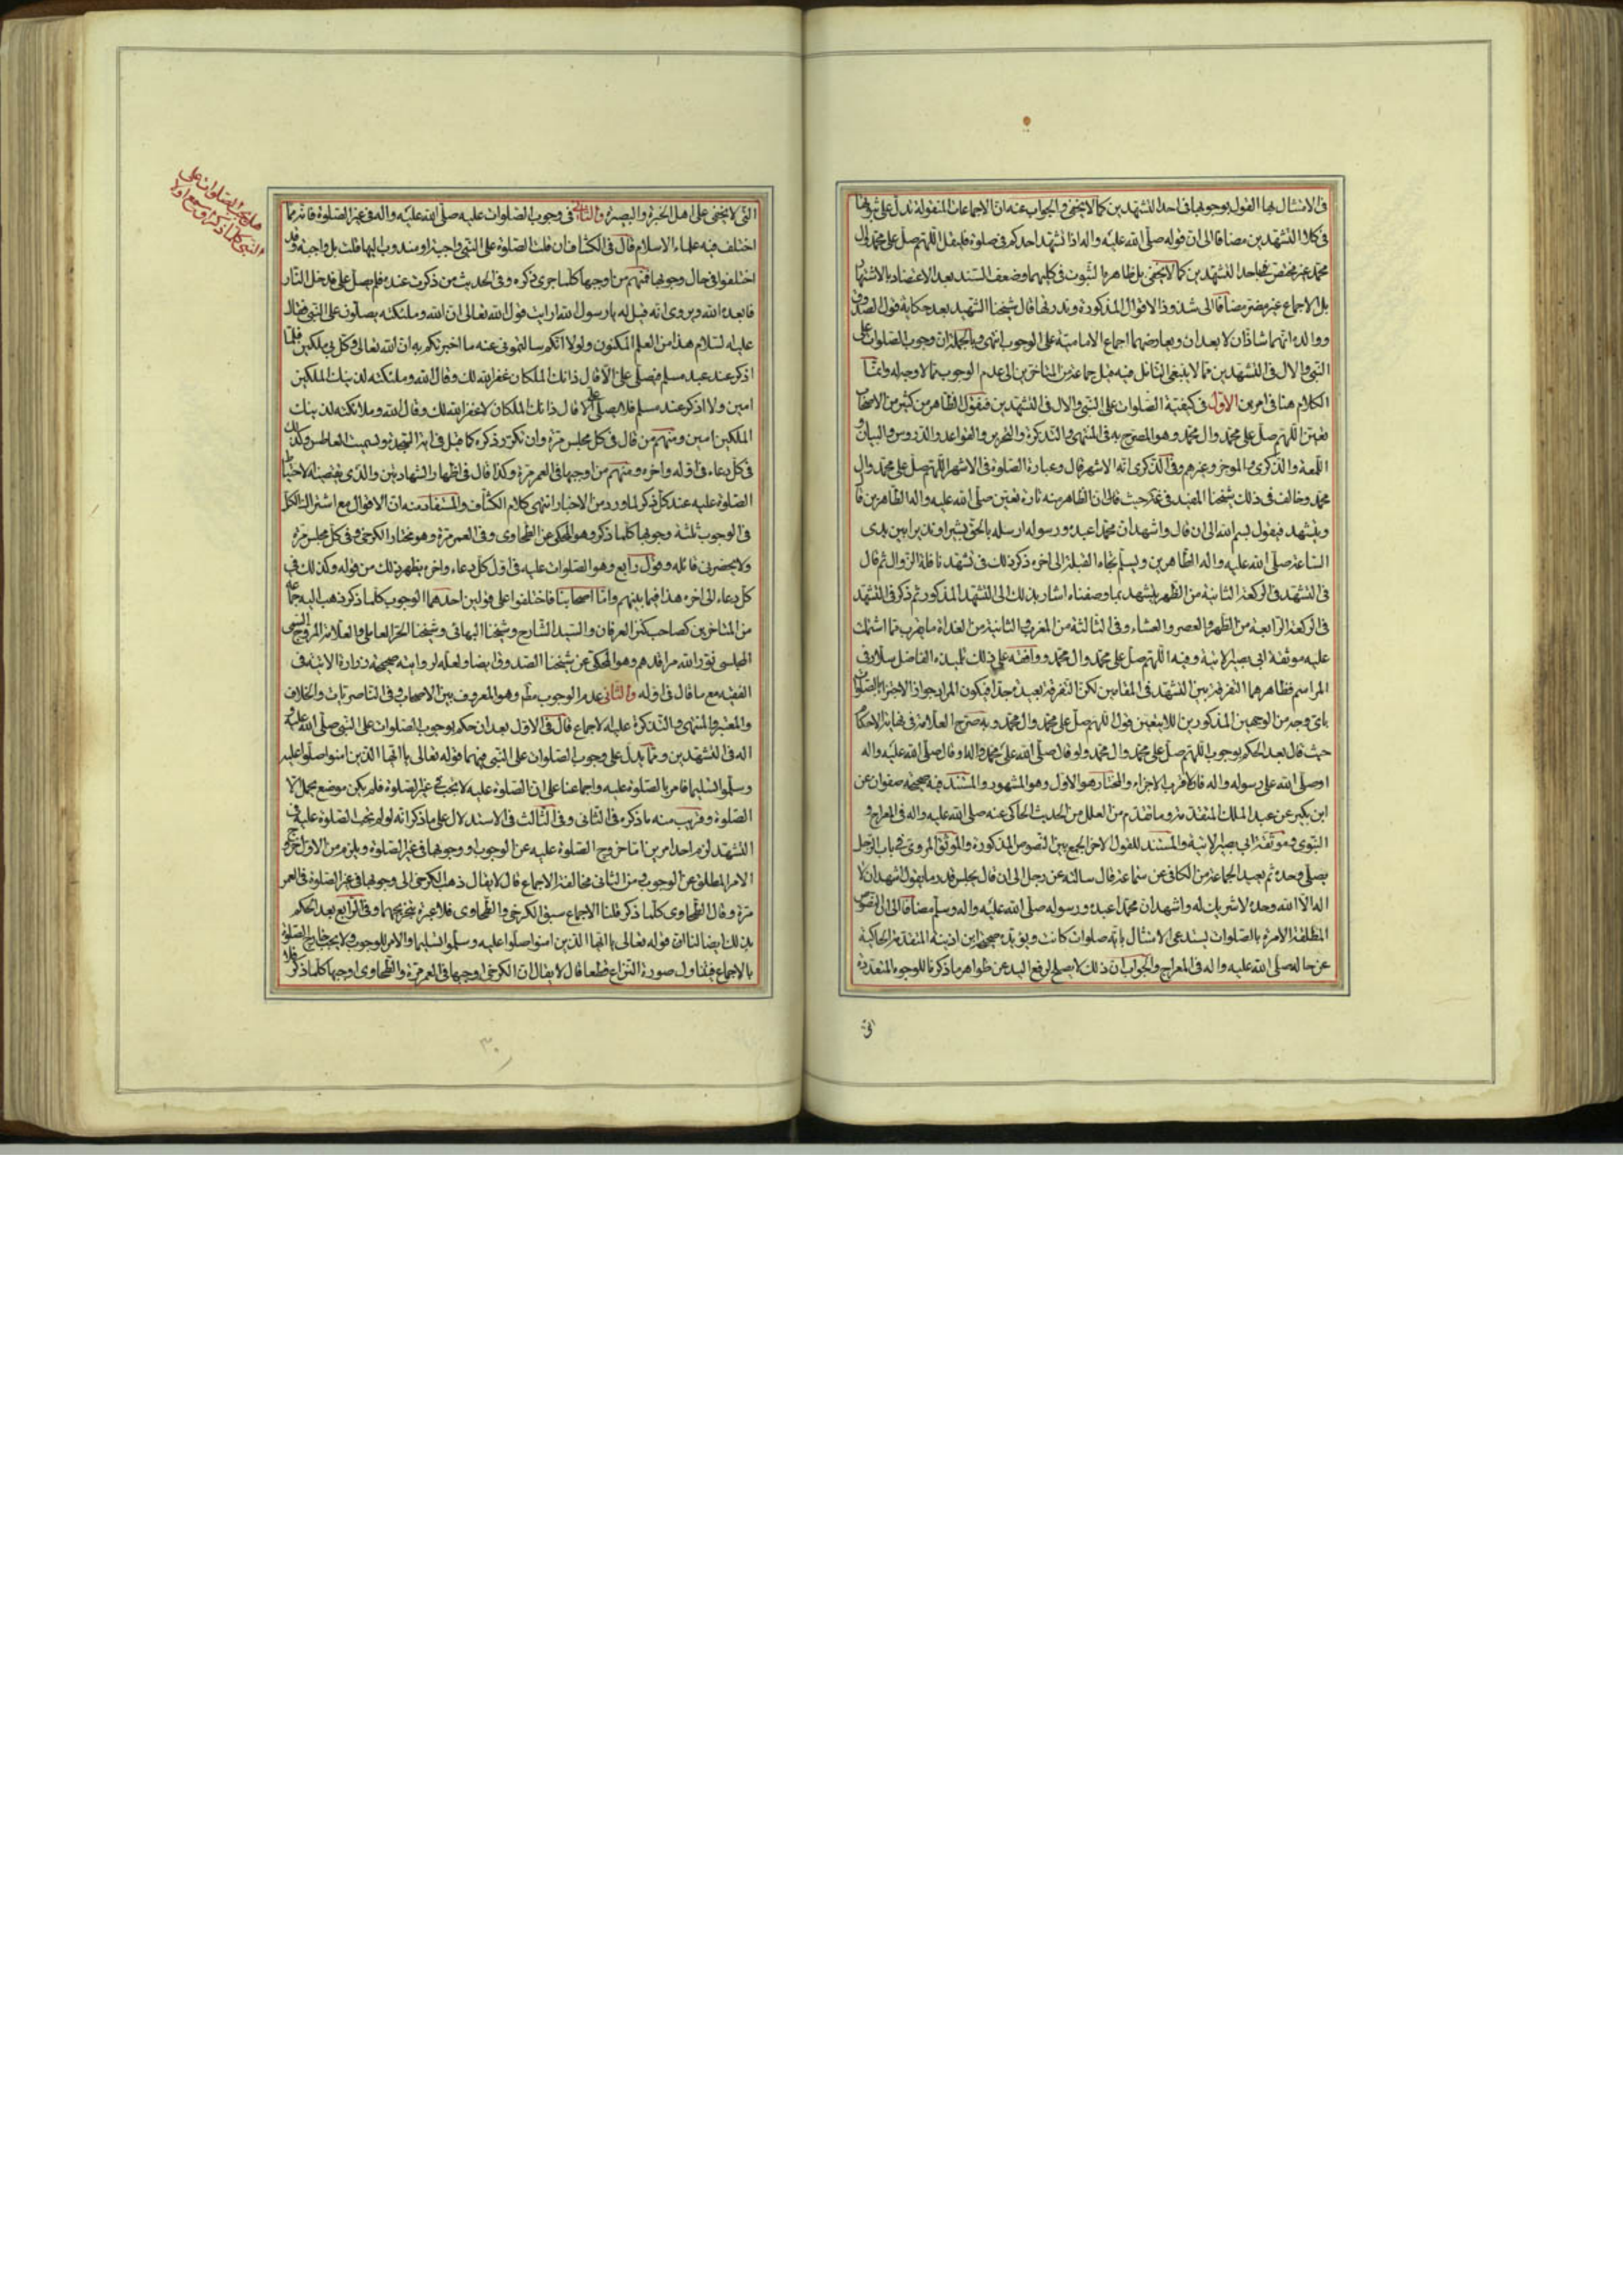 فى الامتثال بها القول بوجوبها فى احد التشهدين كما لا يخفى والجواب عنه ان الاجماعات المنقولة تدل على ثبوتها
فى كلا التشهدين مضافا الى ان قوله صلى الله عليه واله اذا تشهد احدكم فى صلوة فليقل اللهم صل على محمد وال
محمد غير مختص باحد التشهدين كما لا يخفى بل ظاهره الثبوت فى كليهما وضعف السند بعد الاعتضاد بالاشتهار
بل الاجماع غير مضر مضافا الى شذوذ الاقوال المذكورة وندرتها قال شيخنا الشهيد بعد حكاية قول الصدوق
ووالده انهما شاذان لا يعدان ويعارضهما اجماع الامامية على الوجوب انتهى وبالجملة ان وجوب الصلوات على
النبى والال فى التشهدين مما لا ينبغى التامل فيه فميل جماعة من المتاخرين الى عدم الوجوب مما لا وجه له وانما
الكلام هنا فى امرين الاول فى كيفية الصلوات على النبى والال فى التشهدين فنقول الظاهر من كثير من الاصحاب
تعين اللهم صل على محمد وال محمد وهو المصرح به فى المنتهى والتذكرة والتحرير والقواعد والدروس والبيان و
اللمعة والذكرى والموجز وغيرهم وفى الذكرى انه الاشهر قال وعبارة الصلوة فى الاشهر اللهم صل على محمد وال
محمد وخالف فى ذلك شيخنا المفيد فى حيث قال ان الظاهر منه تارة تعين صلى الله عليه واله الطاهرين قال
ويتشهد فيقول بسم الله الى ان قال واشهد ان محمدا عبده ورسوله ارسله بالحق بشيرا ونذيرا بين يدى
الساعة صلى الله عليه واله الطاهرين ويسلم تجاه القبلة الى اخره ذكر ذلك فى تشهد نافلة الزوال ثم قال
فى التشهد فى الركعة الثانية من الظهر يتشهد بما وصفناه اشار بذلك الى التشهد المذكور ثم ذكر فى التشهد
فى الركعة الرابعة من الظهر والعصر والعشاء وفى الثالثة من المغرب والثانية من الغداة ما يقرب مما اشتملت
عليه موثقة ابى بصير الاتية وفيه اللهم صل على محمد وال محمد ووافقه على ذلك تلميذه الفاضل سلار فى
المراسم فظاهرهما التفرقة بين التشهد فى المقامين لكن التفرقة بعيدة جدا فيكون المراد جواز الاجتزاء بالصلوات
باى وجه من الوجهين المذكورين لا تعين قول اللهم صل على محمد وال محمد وبه صرح العلامة فى نهاية الاحكام
حيث قال بعد الحكم بوجوب اللهم صل على محمد وال محمد ولو قال صلى الله على محمد واله او قال صلى الله عليه واله
او صلى الله على رسوله واله فالاقرب الاجزاء والمختار هو الاول وهو المشهور والمستند فيه صحيحة صفوان عن
ابن بكير عن عبد الملك المتقدمة وما تقدم من العلل من الحديث الحاكى عنه صلى الله عليه واله فى المعراج و
النبوى وموثقة ابى بصير الاتية والمستند للقول الاخر الجمع بين النصوص المذكورة والموثق المروى فى باب الرجل
يصلى وحده ثم يعيد الجماعة من الكافى عن سماعة قال سالته عن رجل الى ان قال يجلس قدر ما يقول اشهد ان لا
اله الا الله وحده لا شريك له واشهد ان محمدا عبده ورسوله صلى الله عليه واله وسلم مضافا الى ان النصوص
المطلقة الامرة بالصلوات يستدعى الامتثال باية صلوات كانت ويؤيده صحيحة ابن اذينة المتقدمة الحاكية
عن حاله صلى الله عليه واله فى المعراج والجواب ان ذلك لا يصلح لرفع اليد عن ظواهر ما ذكرنا للوجوه المتعددة
هل يجب الصلوات على
النبى كلما ذكره او سمع اولا
التى لا يخفى على اهل الخبرة والبصيرة والثانى فى وجوب الصلوات عليه صلى الله عليه واله فى غير الصلوة فانه مما
اختلف فيه علماء الاسلام قال فى الكشاف فان قلت الصلوة على النبى واجبة او مندوب اليها قلت بل واجبة وقد
اختلفوا فى حال وجوبها فمنهم من اوجبها كلما جرى ذكره وفى الحديث من ذكرت عنده فلم يصل على فدخل النار
فابعده الله ويروى انه قيل له يا رسول الله ارايت قول الله تعالى ان الله وملئكته يصلون على النبى فقال
عليه السلام هذا من العلم المكنون ولولا انكم سالتمونى عنه ما اخبرتكم به ان الله تعالى وكل بى ملكين فلما
اذكر عند عبد مسلم فيصلى على الا قال ذانك الملكان غفر الله لك وقال الله وملئكته لذينك الملكين
امين ولا اذكر عند مسلم فلا يصلى على الا قال ذانك الملكان لا غفر الله لك وقال الله وملائكته لذينك
الملكين امين ومنهم من قال فى كل مجلس مرة وان تكرر ذكره كما قيل فى اية السجدة وتسميت العاطس وكذلك
فى كل دعاء فى اوله واخره ومنهم من اوجبها فى العمر مرة وكذا قال فى اظهار الشهادتين والذى يقتضيه الاحتياط
الصلوة عليه عند كل ذكر لما ورد من الاخبار انتهى كلام الكشاف والمستفاد منه ان الاقوال مع اشتراك الكل
فى الوجوب ثلثة وجوبها كلما ذكر وهو المحكى عن الطحاوى وفى العمر مرة وهو مختار الكرخى وفى كل مجلس مرة
ولا يحضرنى قائله وقول رابع وهو الصلوات عليه فى اول كل دعاء واخره يظهر ذلك من قوله وكذلك فى
كل دعاء الى اخره هذا فيما بينهم واما اصحابنا فاختلفوا على قولين احدهما الوجوب كلما ذكر ذهب اليه جماعة
من المتاخرين كصاحب كنز العرفان والسيد الشارح وشيخنا البهائى وشيخنا الحر العاملى والعلامة المروج السمى
المجلسى نور الله مراقدهم وهو المحكى عن شيخنا الصدوق ايضا ولعله لروايته صحيحة زرارة الاتية فى
الفقيه مع ما قال فى اوله والثانى عدم الوجوب مطلقا وهو المعروف بين الاصحاب وفى الناصريات والخلاف
والمعتبر والمنتهى والتذكرة عليه الاجماع قال فى الاول بعد ان حكم بوجوب الصلوات على النبى صلى الله عليه و
اله فى التشهدين ومما يدل على وجوب الصلوات على النبى فيهما قوله تعالى يا ايها الذين امنوا صلوا عليه
وسلموا تسليما فامر بالصلوة عليه واجماعنا على ان الصلوة عليه لا تجب فى غير الصلوة فلم يكن موضع يحمل الا
الصلوة وقريب منه ما ذكره فى الثانى وفى الثالث فى الاستدلال على ما ذكر انه لو لم تجب الصلوة عليه فى
التشهد لزم احد امرين اما خروج الصلوة عليه عن الوجوب او وجوبها فى غير الصلوة ويلزم من الاول خروج
الامر المطلق عن الوجوب ومن الثانى مخالفة الاجماع قال لا يقال ذهب الكرخى الى وجوبها فى غير الصلوة فى العمر
مرة وقال الطحاوى كلما ذكر قلنا الاجماع سبق الكرخى والطحاوى فلا عبرة بتخريجهما وفى الرابع بعد الحكم
بذلك ايضا لنا ان قوله تعالى يا ايها الذين امنوا صلوا عليه وسلموا تسليما والامر للوجوب ولا يجب خارج الصلوة
بالاجماع فيتناول صورة النزاع قطعا قال لا يقال ان الكرخى اوجبها فى العمر مرة والطحاوى اوجبها كلما ذكر